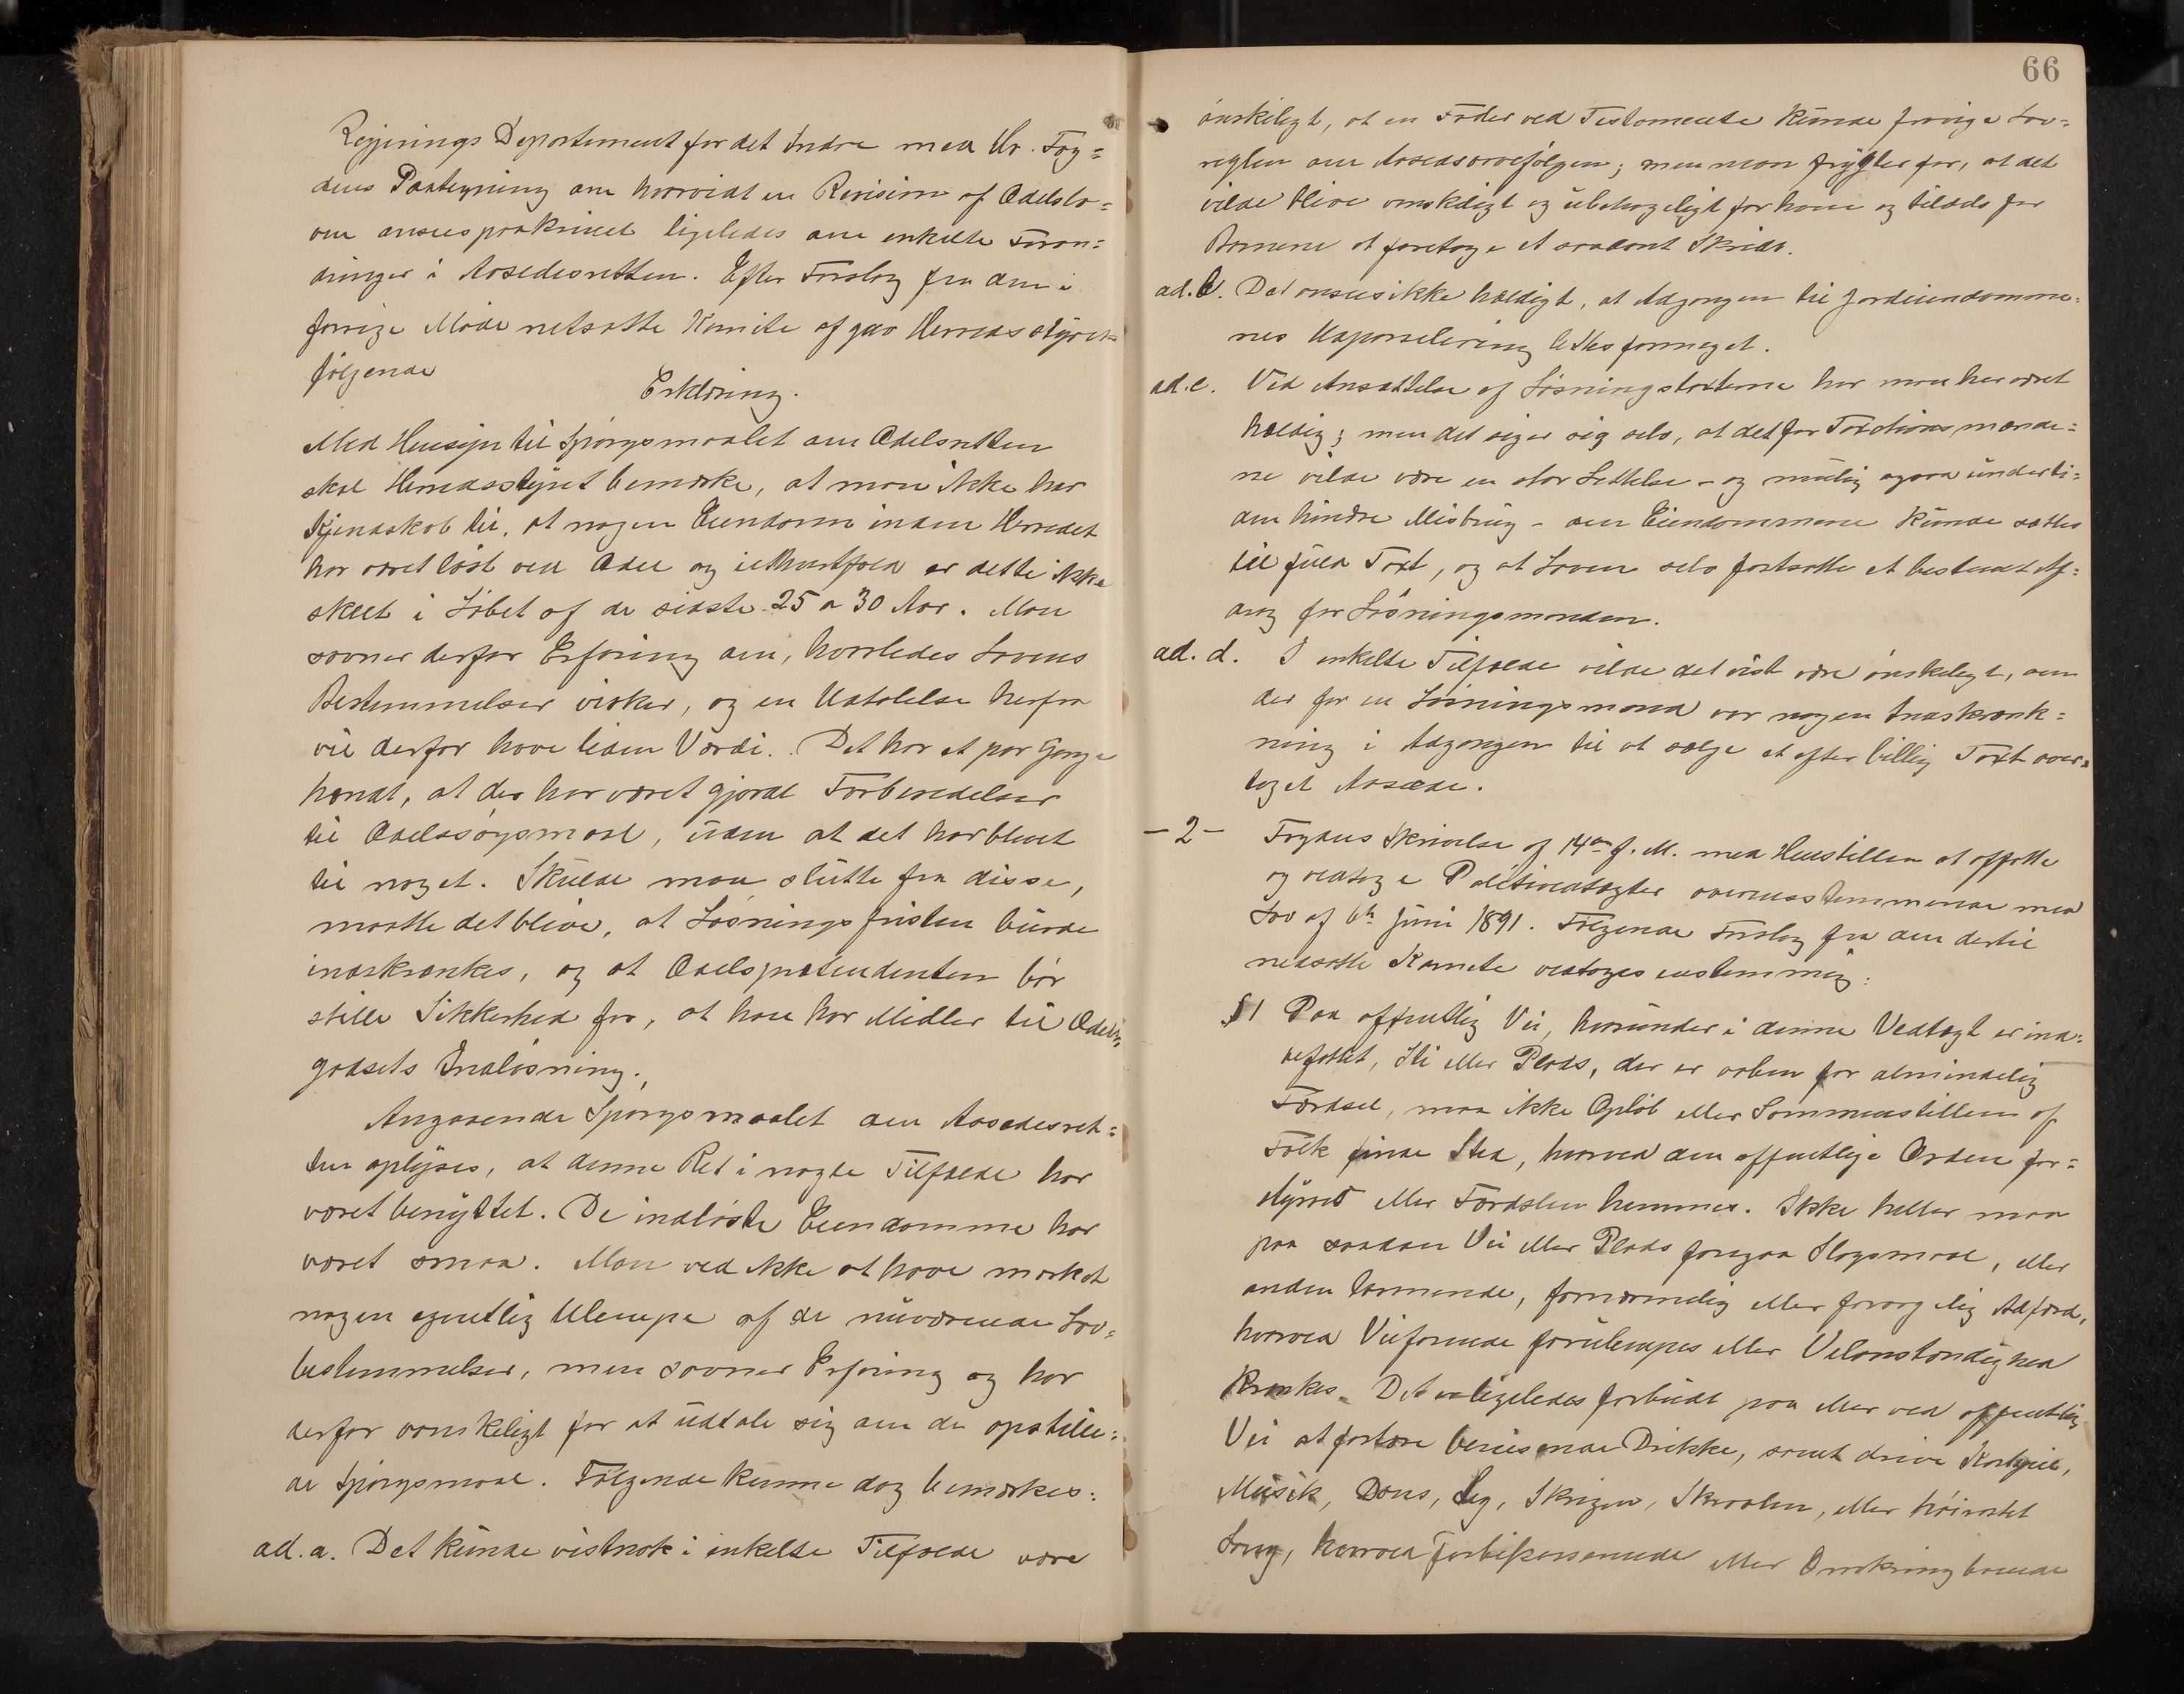 Regjerings Departement for det Indre med Hr. Fog=
dens Paategning om hvorvidt en Revision af Odelslo=
ven ansees paakrævet ligeledes om enkelte Foran=
dringer i Aasædesretten. Efter Forslag fra den i
forrige Møde nedsatte Komite afgav Herredsstyret
følgende
Erklæring.
Med Hensyn til Spørgsmaalet om Odelsretten
skal Herredsstyret bemærke, at man ikke har
Kjendskab til, at nogen Eiendom inden Herredet
har været løst ved Odel og iethvertfald er dette ikke
skeet i Løbet af de sidste 25 a 30 Aar. Man
savner derfor Erfaring om, hvorledes Lovens
Bestemmelser virker, og en Udtalelse herfra
vil derfor have liden Værdi. Det har et par Gange
hændt, at der har været gjordt Forberedelser
til Odelssøgsmaal, uden at det har blevet
til noget. Skulde man slutte fra disse,
maatte det blive, at Løsningsfristen burde
indskrænkes, og at Odelsprætendenten bør
stille Sikkerhed for, at han har Midler til Odels,
godsets Indløsning.
Angaaende Spørgsmaalet om Aasædesret=
ten oplyses, at denne Ret i nogle Tilfælde har
været benyttet. De indløste Eiendomme har
været smaa. Man ved ikke at have mærket
nogen egentlig Ulempe af de nuværende Lov=
bestemmelser, men savner Erfaring og har
derfor vanskeligt for at udtale sig om de opstille=
de Spørgsmaal. Følgende kunne dog bemærkes:
ad. a. Det kunde vistnok i enkelte Tilfælde være
66
ønskeligt, at en Fader ved Testamente kunde fravige Lov=
reglen om Aasædsarvefølgen; men man frygter for, at det
vilde blive vanskeligt og ubehageligt for ham og tildels for
Børnene at foretage et saadant Skridt.
ad. b. Det ansees ikke heldigt, at Adgangen til Jordeiendomme=
nes Udparselering lettes formeget.
ad. c. Ved Ansættelse af Løsningstaxterne har man her været
heldig; men det siger sig selv, at det for Taxtionsmænde=
ne vilde være en stor Lettelse – og mulig ogsaa underti=
den hindre Misbrug – om Eiendommene kunde sættes
til fuld Taxt, og at Loven selv fastsatte et bestemt Af=
drag for Løsningsmanden.
ad. d. I enkelte Tilfælde vilde det vist være ønskeligt, om
der for en Løsningsmand var nogen Indskrænk=
ning i Adgangen til at sælge et efter billig Taxt over=
taget Aasæde.
– 2 – Fogdens Skrivelse af 14de f. M. med Henstillen at affatte
og vedtage Politivedtægter overensstemmende med
Lov af 6te Juni 1891. Følgende Forslag fra den dertil
nedsatte Komite vedtoges enstemmig:
§ 1 Paa offentlig Vei, hvorunder i denne Vedtægt er ind=
befattet, Sti eller Plads, der er aaben for almindelig
Færdsel, maa ikke Opløb eller Sammenstillen af
Folk finde Sted, hvorved den offentlige Orden for=
styrres eller Færdslen hemmes. Ikke heller maa
paa saadan Vei eller Plads foregaa Slagsmaal, eller
anden larmende, fornærmelig eller forargelig Adfærd,
hvorved Veifarende forulempes eller Velanstændighed
krænkes. Det er ligeledes forbudt paa eller ved offentlig
Vei at fortære berusende Drikke, samt drive Kortspil,
Musik, Dans, Leg, Skrigen, Skraalen, eller høirøstet
Sang, hvorved Forbipasserende eller Omkringboende